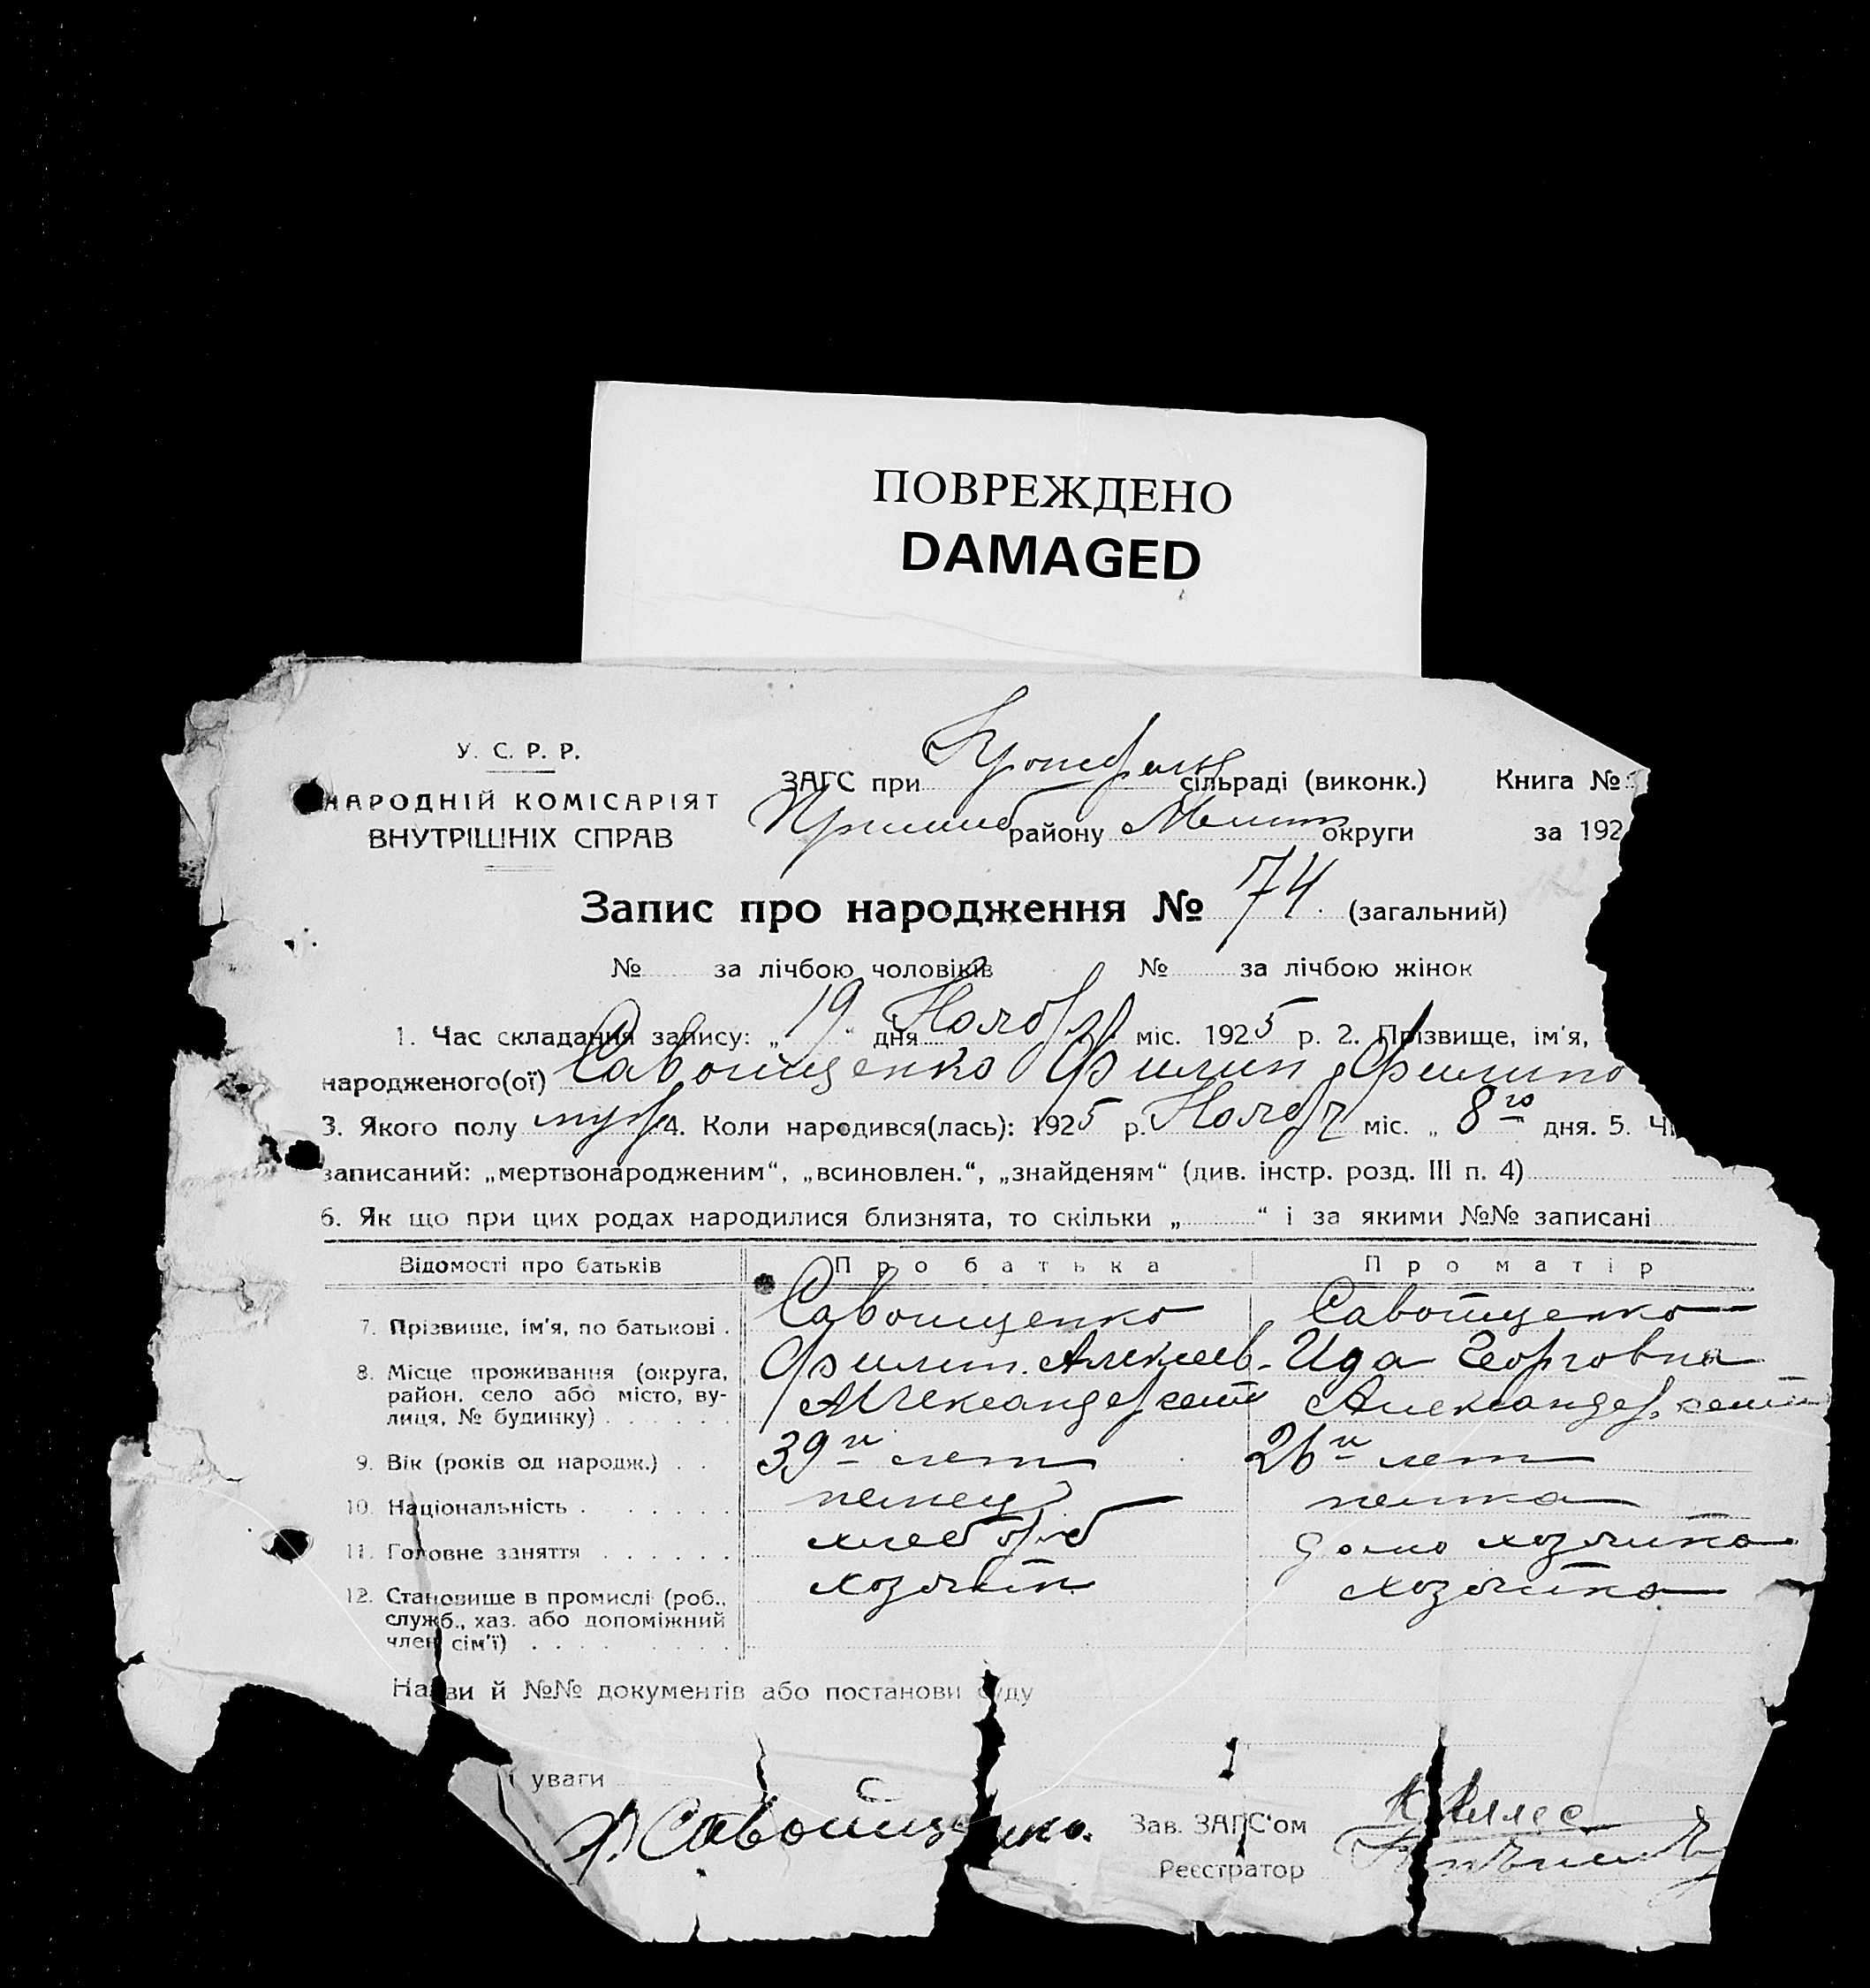 ПОВРЕЖДЕНО
DAMAGED
У. С. Р. Р.
НАРОДНІЙ КОМІСАРІЯТ
ВНУТРІШНІХ СПРАВ
ЗАГС при сільраді (виконк.) Книга №
Пришиб району Мелит округи за 192
Запис про народження № 74. (загальний)
№ за лічбою чоловіків № за лічбою жінок
1. Час складання запису: „ 19. дня Ноября міс. 1925 р. 2. Прізвище, ім'я,
народженого(ої) Савойщенко Филип Филипо
3. Якого полу муж 4. Коли народився(лась): 1925 р. Ноября міс. „ 8го дня. 5. Чи
записаний: „мертвонародженим“, „всиновлен.“, „знайденям“ (див. інстр. розд. III п. 4)
6. Як що при цих родах народилися близнята, то скільки „ “ і за якими №№ записані
Відомості про батьків Про батька Про матір
7. Прізвище, ім'я, по батькові . Савойщенко Савойщенко
8. Місце проживання (округа, Филип. Алексеев. Ида Георговна
район, село або місто, ву-
лиця, № будинку) . . . . . . . Александергейм Александер. гейм
9. Вік (років од народж.) . . 39ти лет 26ти лет
10. Національність . . . . . . . немец немка
11. Головне заняття . . . . . . хлебороб домохозяйка
12. Становище в промислі (роб., хозяин хозяйка
служб., хаз. або допоміжний
член сім'ї) . . . . . . . . .
Назви й №№ документів або постанови суду
уваги
Ф Савойщенко.
Зав. ЗАГС'ом
Реєстратор